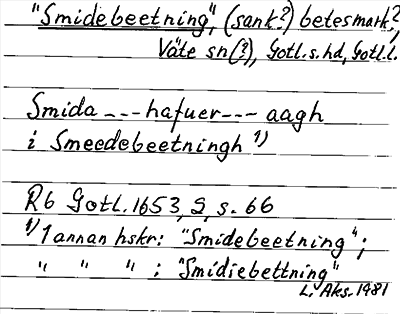 "Smidebeetning", (sank?) betesmark?,
Väte sn(?), Gotl.s.hd, Gotl.l.
Smida ---hafuer--- aagh
i Smeedebeetningh 1)
Rb Gotl. 1653, 2, s. 66
1) I annan hskr: "Smidebeetning";
" " " : "Smidiebettning"
L. Aks. 1981